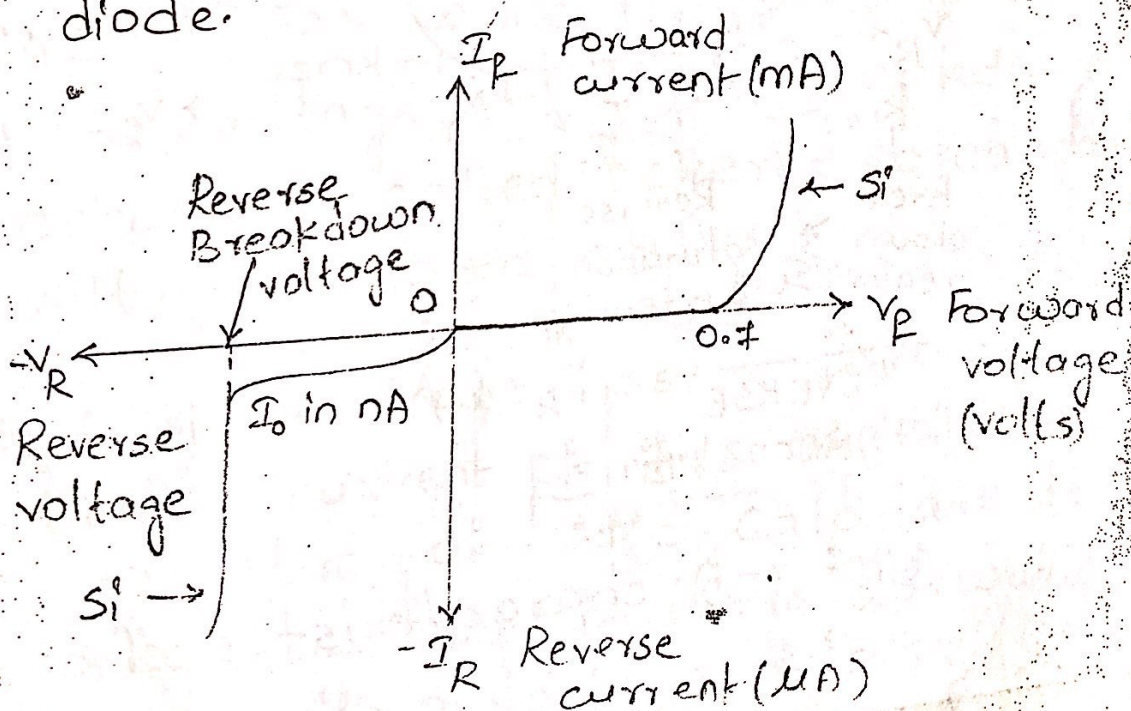 diode.
I_f Forward
current (mA)
Reverse
Breakdown
voltage
← Si
0
0.7
V_f Forward
voltage
(volts)
-V_R
I_o in nA
Reverse
voltage
Si →
-I_R Reverse
current (μA)